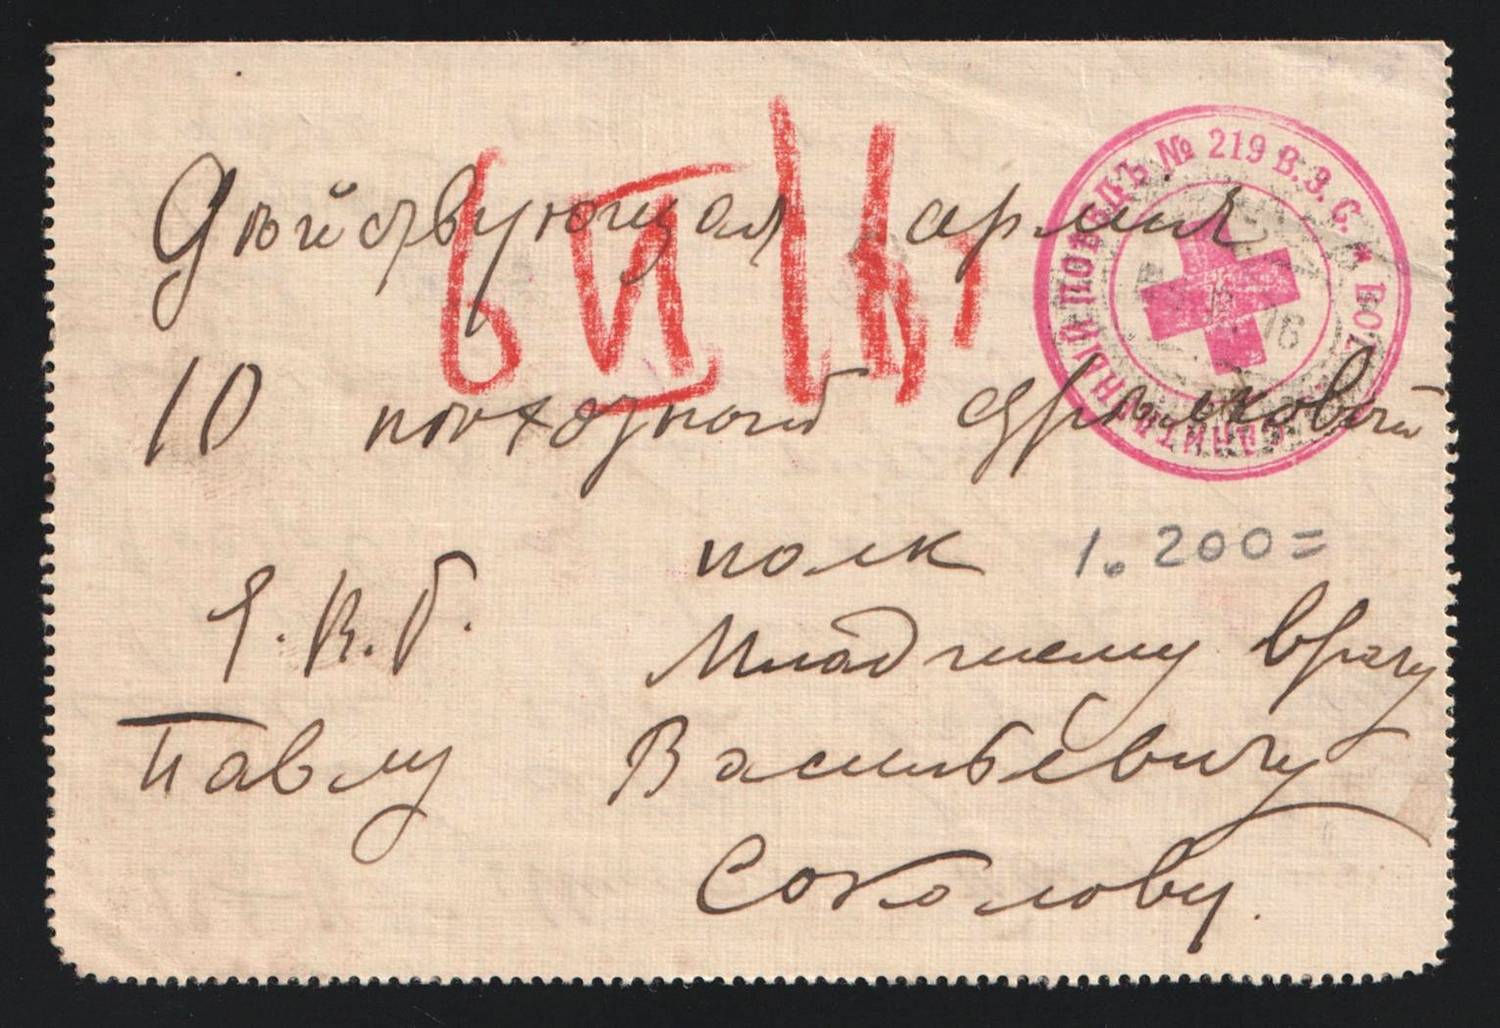 Дѣйствующая армия
10 походный стрѣлковый
полк
1.200=
Е.В.Б.
Младшему врачу
Павлу Васильевичу
Соколову.
6 VI 16 г
САНИТАРНЫЙ ПОѢЗДЪ № 219 В.З.С.
16